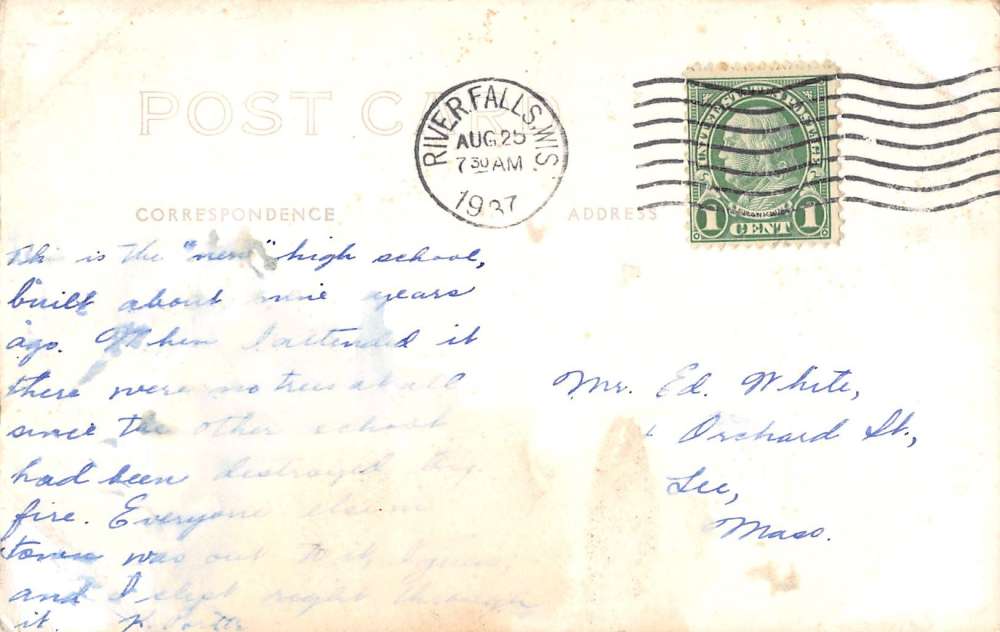 POST CARD
RIVER FALLS, WIS.
AUG 25
7 30 AM
1937
UNITED STATES POSTAGE
FRANKLIN
1 CENT 1
CORRESPONDENCE
ADDRESS
This is the "new" high school,
built about nine years
ago. When I attended it
there were no trees at all
since the other school
had been destroyed by
fire. Everyone else in
town was out to it
and I slept right through
it. K. Porter
Mr. Ed. White,
Orchard St.,
Lee,
Mass.